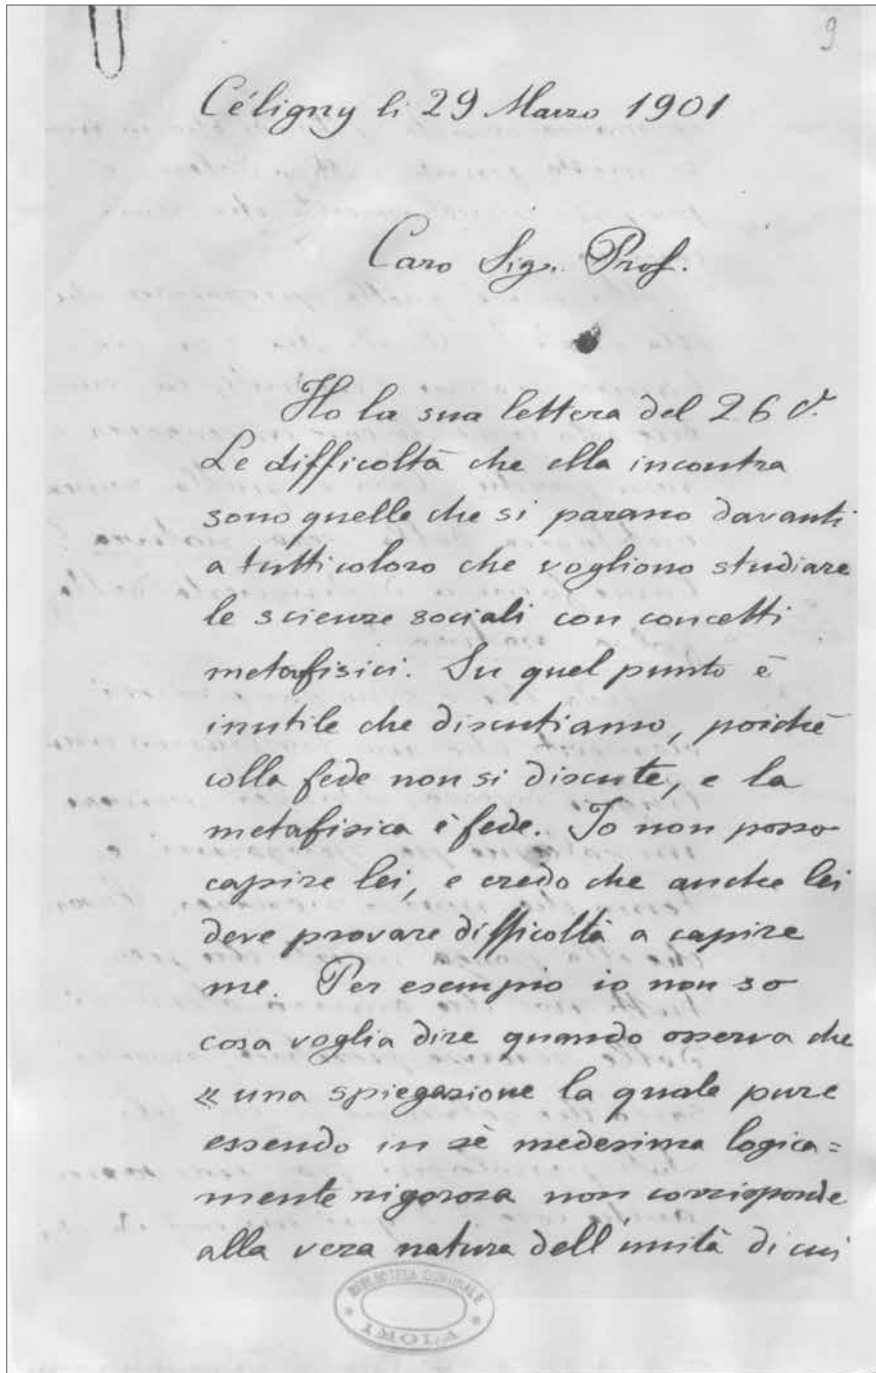 9
Céligny li 29 Marzo 1901
Caro Sig. Prof.
Ho la sua lettera del 26 
Le difficoltà che ella incontra
sono quelle che si parano davanti
a tutti coloro che vogliono studiare
le scienze sociali con concetti
metafisici. Su quel punto è
inutile che discutiamo, poichè
colla fede non si discute, e la
metafisica è fede. Io non posso
capire lei, e credo che anche lei
deve provare difficoltà a capire
me. Per esempio io non so
cosa voglia dire quando osserva che
« una spiegazione la quale pure
essendo in sè medesima logica=
mente rigorosa non corrisponde
alla vera natura dell'unità di cui
BIBLIOTECA COMUNALE
IMOLA